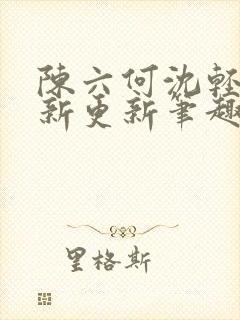 陳六何沈輕
新更新筆趣
里格斯